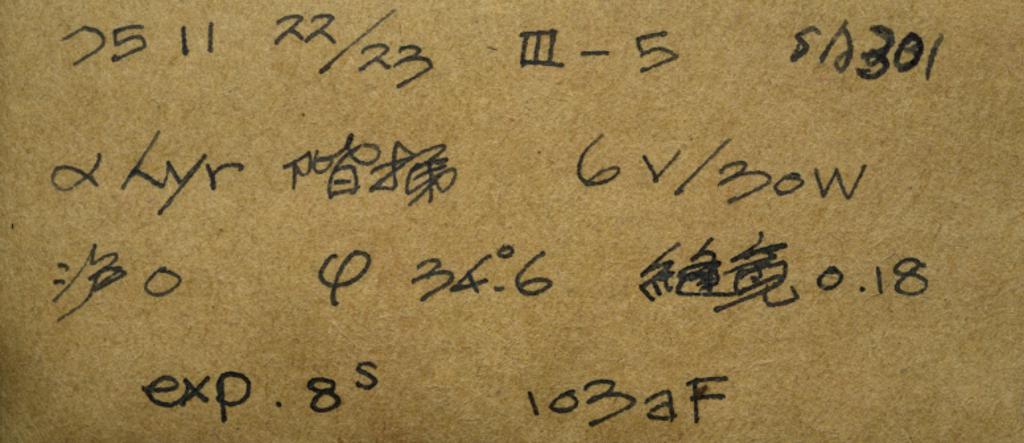 7511 22/23 III-5 SA301
α Lyr 階梯 6V/30W
沪 0 φ 34°.6 縫寬 0.18
exp. 8s 103aF